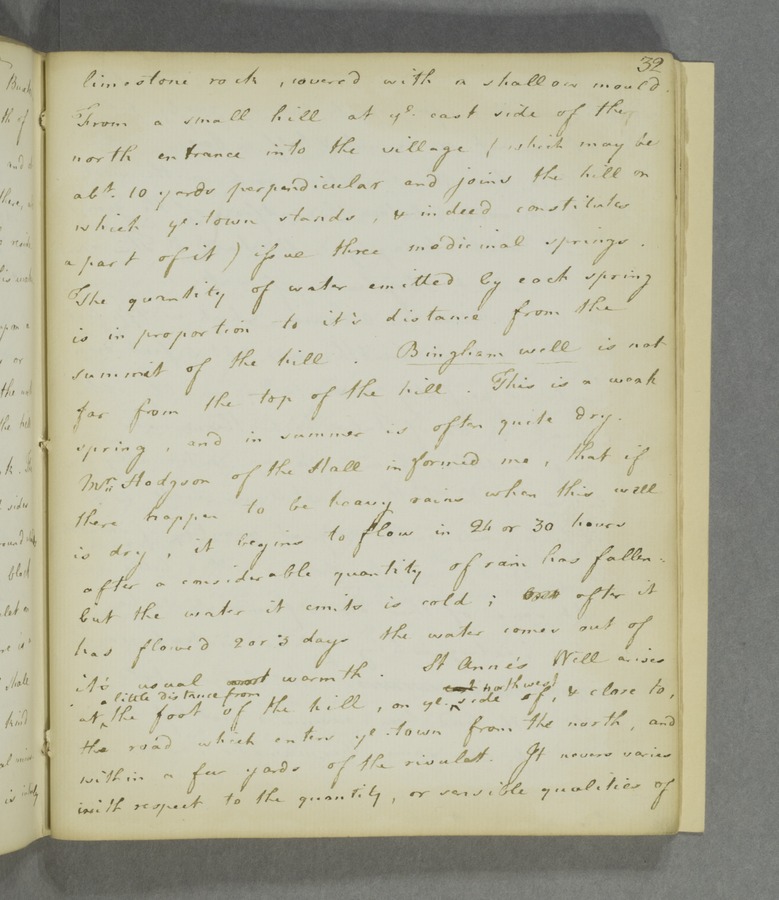 32
limestone rock, covered with a shallow mould.
From a small hill at ye. east side of the
north entrance into the village (which may be
abt. 10 yards perpendicular and joins the hill on
which ye. town stands, & indeed constitutes
a part of it) issue three medicinal springs.
The quantity of water emitted by each spring
is in proportion to it's distance from the
summit of the hill. Bingham well is not
far from the top of the hill. This is a weak
spring, and in summer is often quite dry.
Mrs. Hodgson of the Hall informed me, that if
there happen to be heavy rains when this well
is dry, it begins to flow in 24 or 30 hours
after a considerable quantity of rain has fallen.
but the water it emits is cold; after it
has flowed 2 or 3 days the water comes out of
it's usual warmth. St Anne's Well arises
a little distance from north west
at the foot of the hill, on ye. side of, & close to,
the road which enters ye. town from the north, and
within a few yards of the rivulet. It never varies
with respect to the quantity, or sensible qualities of